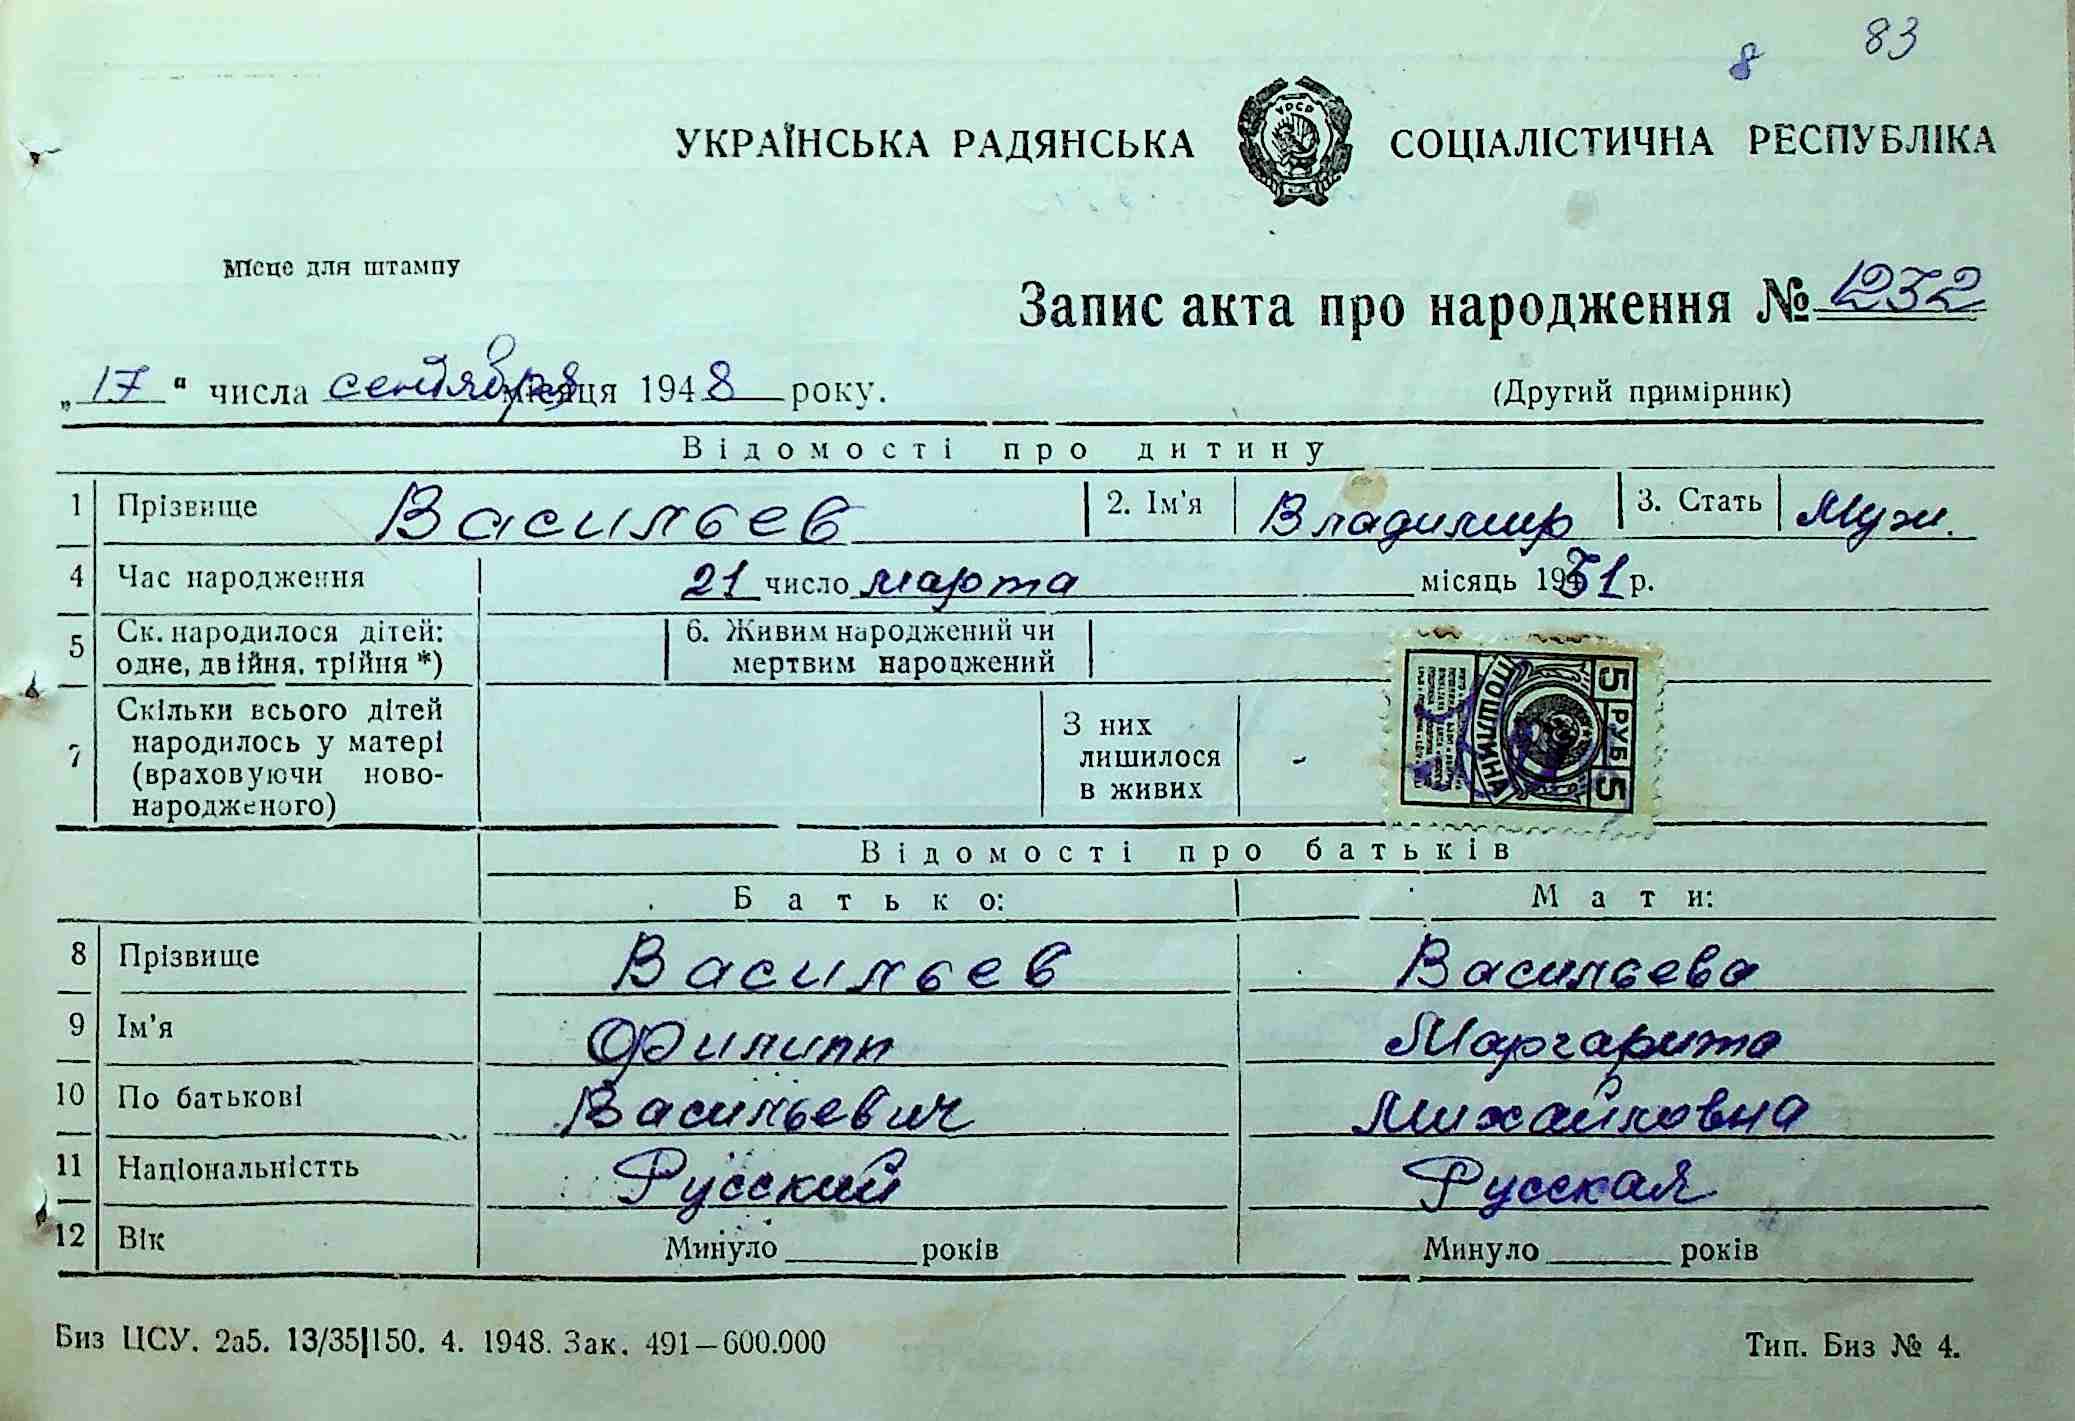 8 83
УКРАЇНСЬКА РАДЯНСЬКА СОЦІАЛІСТИЧНА РЕСПУБЛІКА
УРСР
Місце для штампу
Запис акта про народження № 1232
„17“ числа сентября місяця 1948 року.
(Другий примірник)
Відомості про дитину
1 Прізвище Васильев 2. Ім'я Владимир 3. Стать Муж.
4 Час народження 21 число марта місяць 1931 р.
5 Ск. народилося дітей: одне, двійня, трійня *) 6. Живим народжений чи мертвим народжений
7 Скільки всього дітей народилось у матері (враховуючи ново-народженого) З них лишилося в живих -
5 РУБ 5
ГОСПОШЛИНА
Відомості про батьків
Батько: Мати:
8 Прізвище Васильев Васильева
9 Ім'я Филипп Маргарита
10 По батькові Васильевич Михайловна
11 Національністть Русский Русская
12 Вік Минуло років Минуло років
Биз ЦСУ. 2а5. 13/35|150. 4. 1948. Зак. 491—600.000 Тип. Биз № 4.